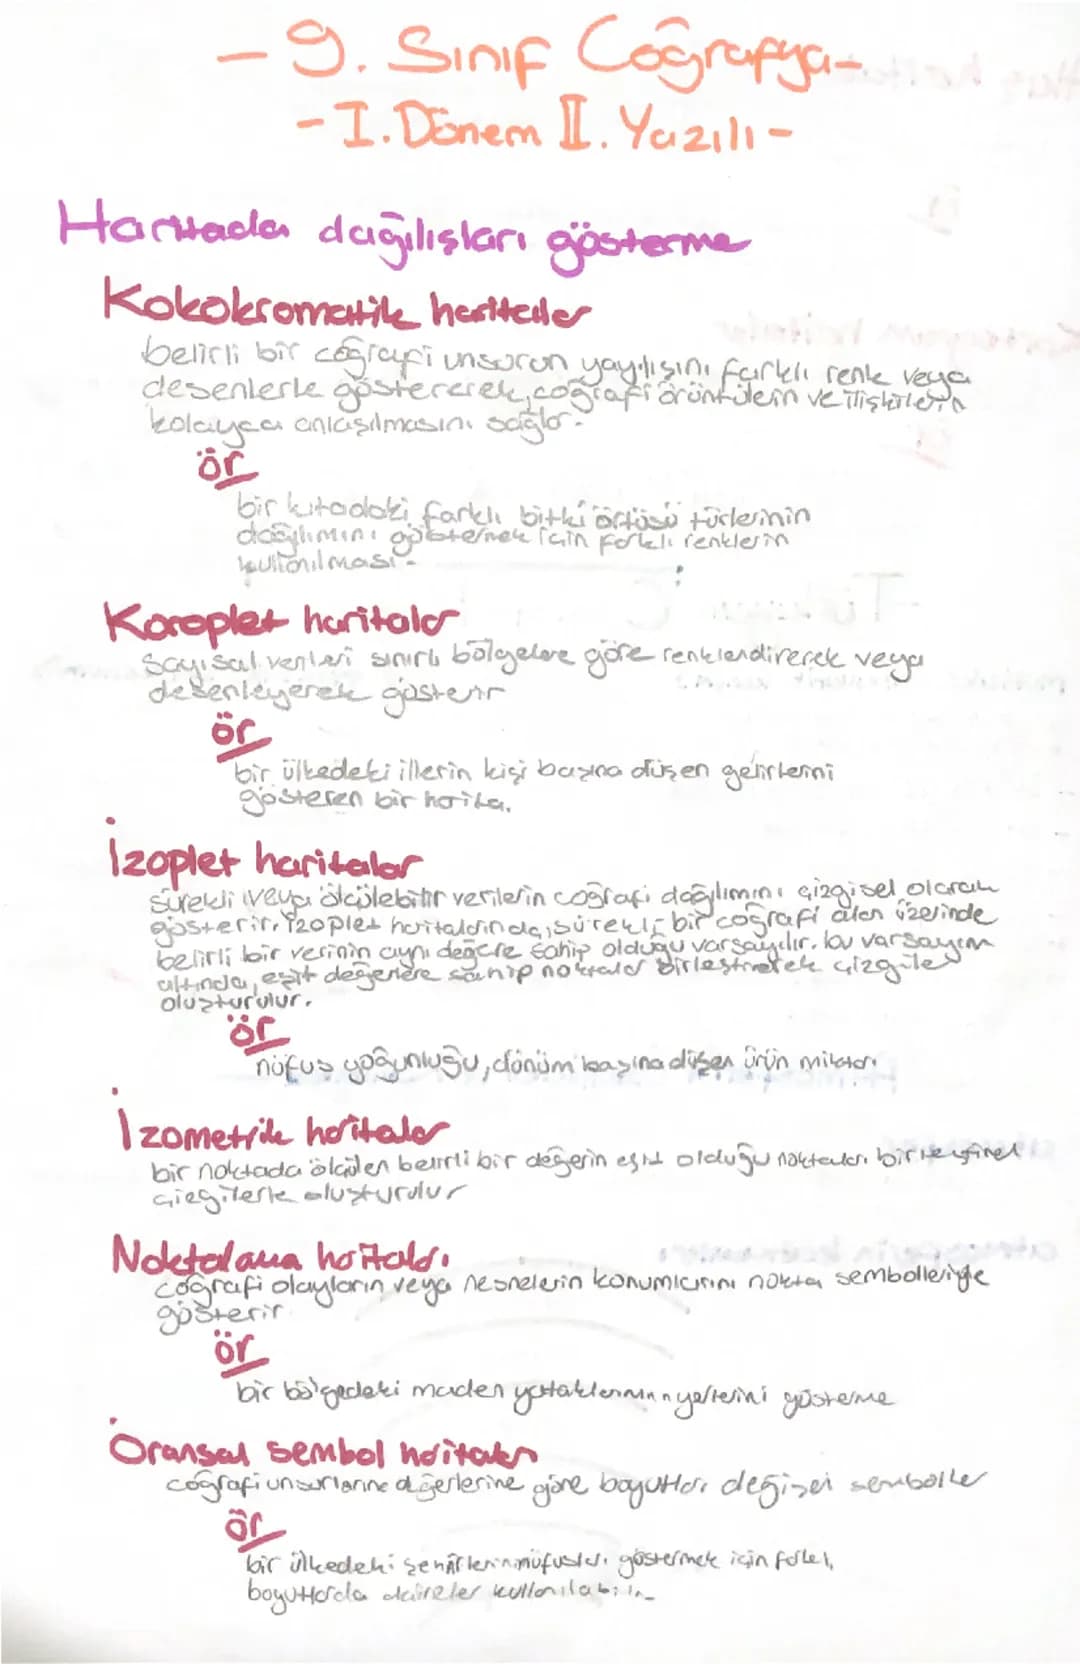 - 9. Sınıf Coğrafya-
- I. Dönem II. Yazılı -
Haritada dağılışları gösterme
Kokokromatik haritalar
belirli bir coğrafi unsurun yayılışını farklı renk veya
desenlerle göstererek, coğrafi örüntülerin ve ilişkilerin
kolayca anlaşılmasını sağlar.
ör
bir kıtadaki farklı bitki örtüsü türlerinin
dağılımını göstermek için farklı renklerin
kullanılması.
Koroplet haritalar
sayısal verileri sınırlı bölgelere göre renklendirerek veya
desenleyerek gösterir
ör
bir ülkedeki illerin kişi başına düşen gelirlerini
gösteren bir harita.
İzoplet haritalar
sürekli veya ölçülebilir verilerin coğrafi dağılımını çizgisel olarak
gösterir. İzoplet haritalarında, sürekli bir coğrafi alan üzerinde
belirli bir verinin aynı değere sahip olduğu varsayılır. bu varsayım
altında, eşit değerlere sahip noktalar birleştirilerek çizgiler
oluşturulur.
ör
nüfus yoğunluğu, dönüm başına düşen ürün miktarı
İzometrik haritalar
bir noktada ölçülen belirli bir değerin eşit olduğu noktaları birleştiren
çizgilerle oluşturulur
Noktalama haritaları
coğrafi olayların veya nesnelerin konumlarını nokta sembolleriyle
gösterir
ör
bir bölgedeki maden yataklarının yerlerini gösterme
Oransal sembol haritaları
coğrafi unsurların değerlerine göre boyutları değişen semboller
ör
bir ülkedeki şehirlerin nüfusları göstermek için farklı
boyutlarda daireler kullanılabilir